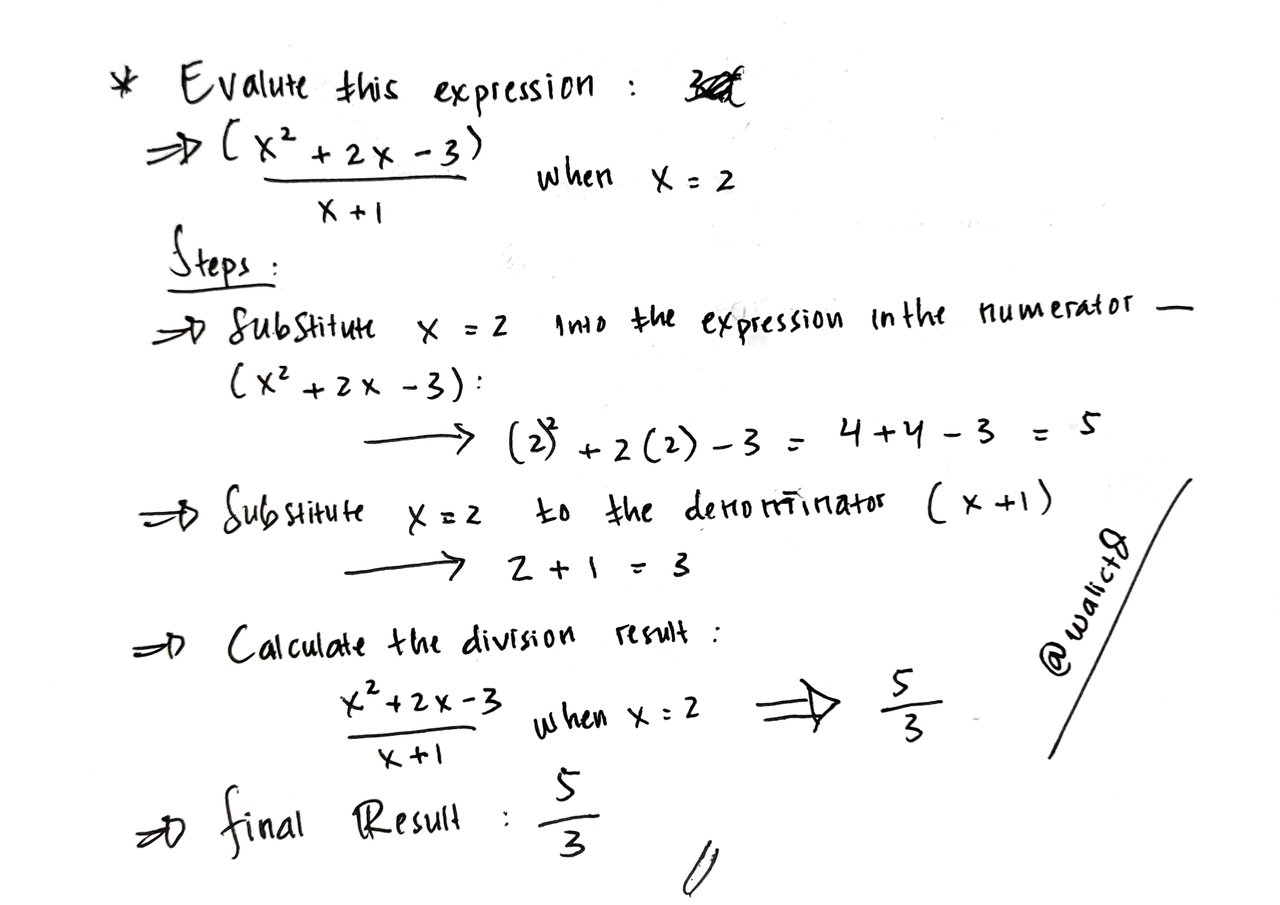 * Evalute this expression :
⇒ (x² + 2x - 3)
x + 1
when x = 2
Steps :
⇒ Substitute x = 2 into the expression in the numerator —
(x² + 2x - 3) :
⟶ (2)² + 2(2) - 3 = 4 + 4 - 3 = 5
⇒ Substitute x = 2 to the denominator (x + 1)
⟶ 2 + 1 = 3
⇒ Calculate the division result :
x² + 2x - 3
x + 1
when x = 2 ⇒ 5
3
⇒ final Result : 5
3